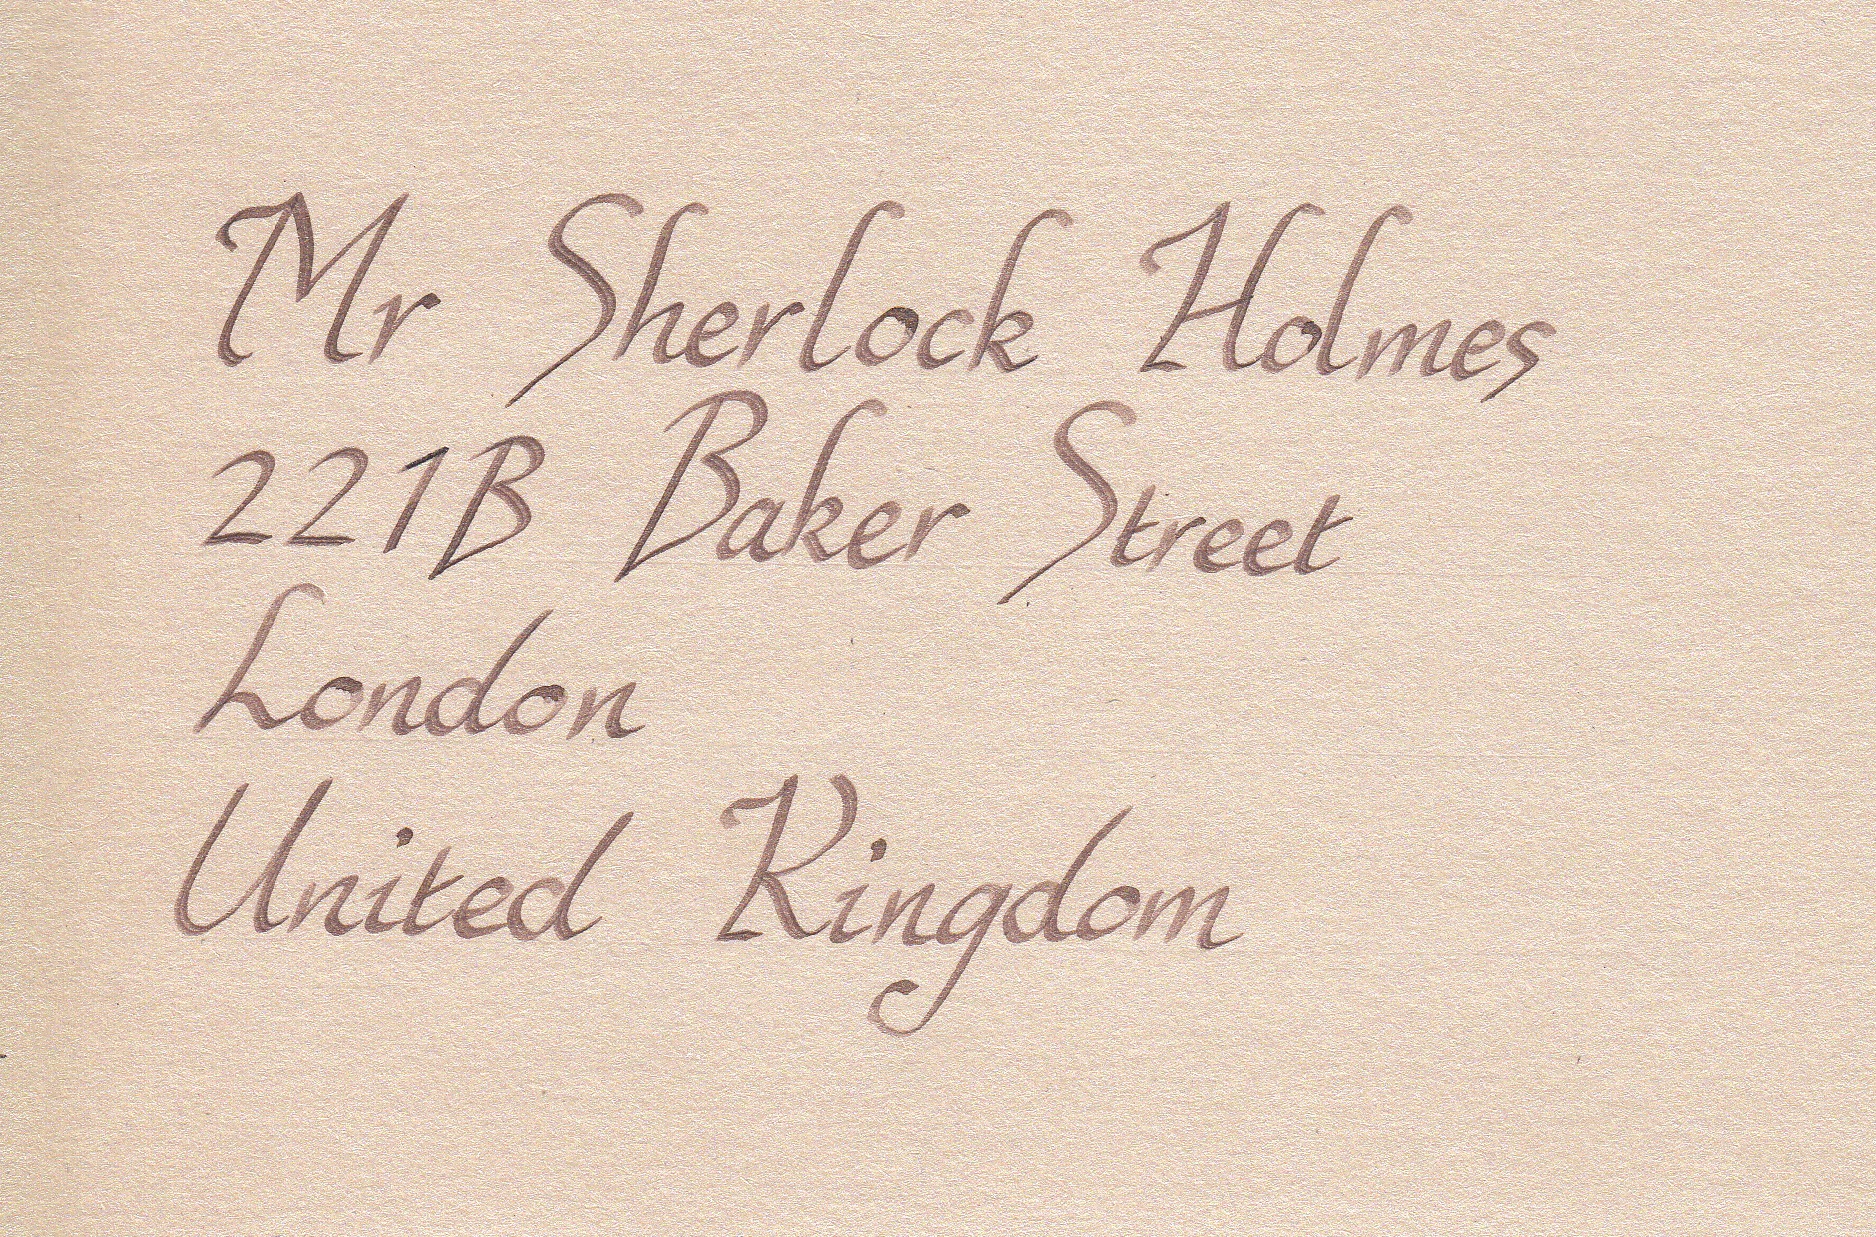 Mr Sherlock Holmes
221B Baker Street
London
United Kingdom